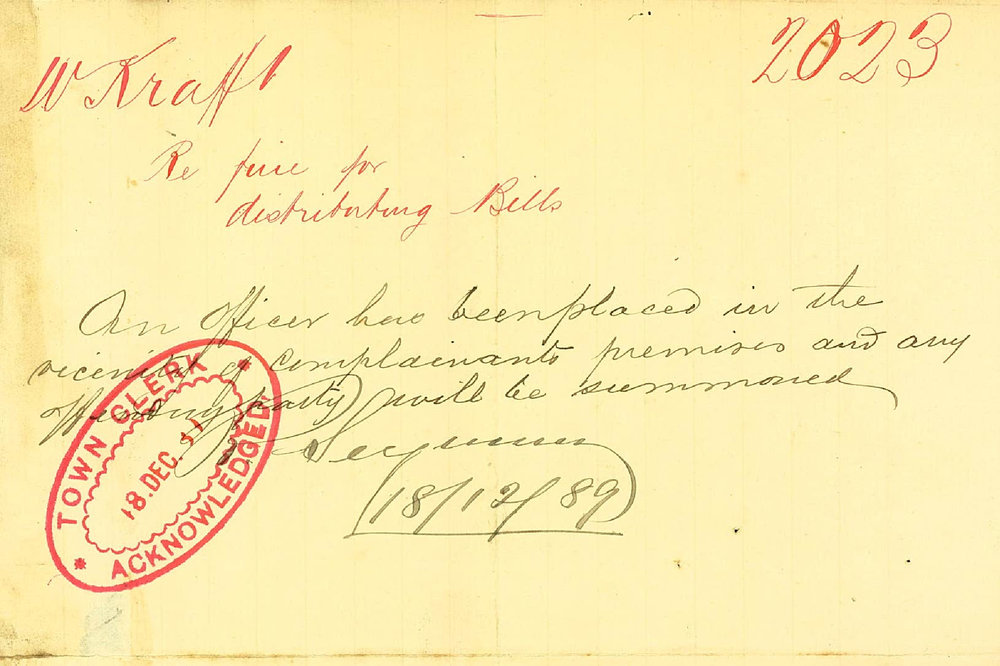 W Kraft
2023
Re fine for
distributing Bills
An officer has been placed in the
vicinity of complainants premises and any
offending party will be summoned
18/12/89
TOWN CLERK
18. DEC.
ACKNOWLEDGED